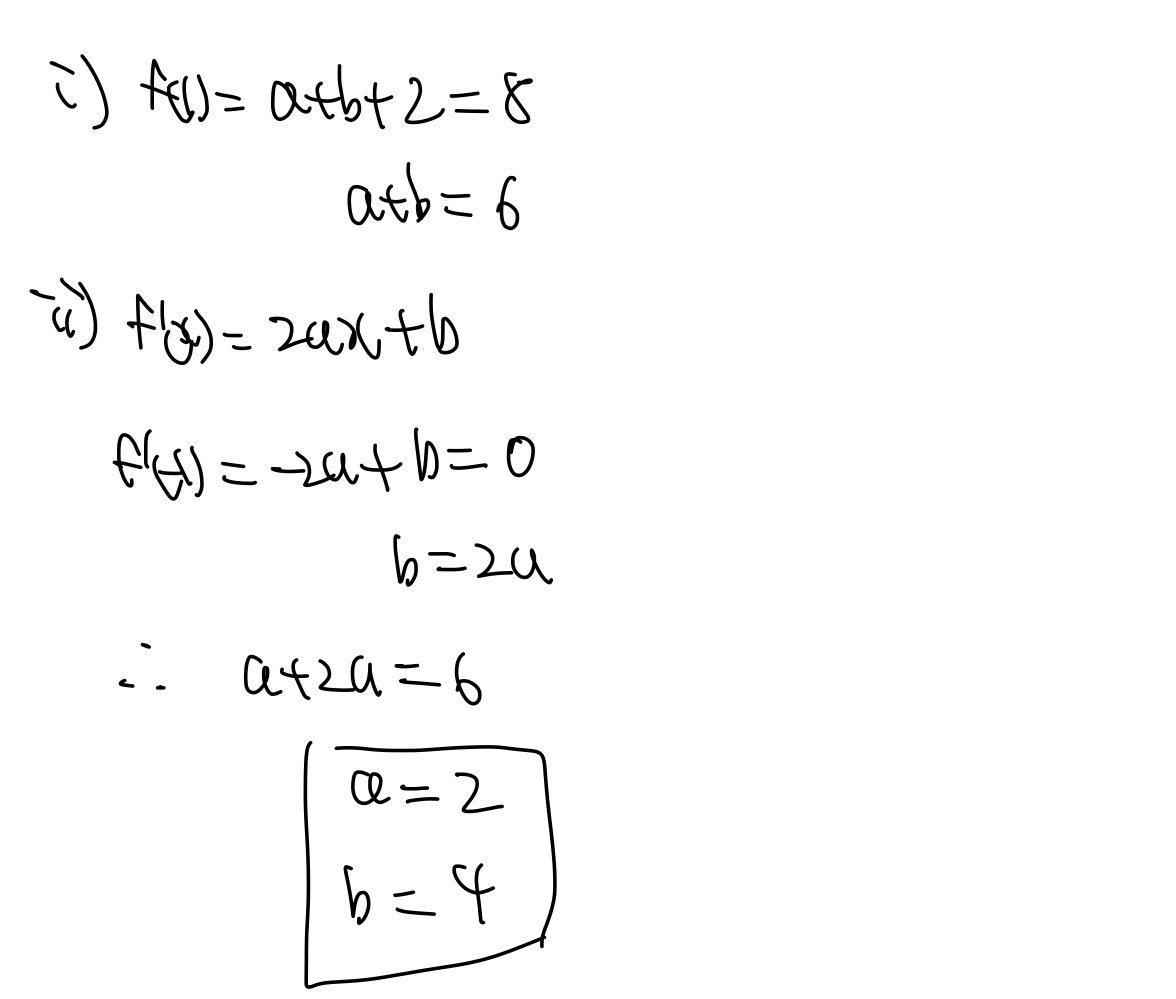 i) f(1) = a+b+2 = 8
a+b = 6
ii) f'(x) = 2ax+b
f'(-1) = -2a+b = 0
b = 2a
∴ a+2a = 6
a = 2
b = 4